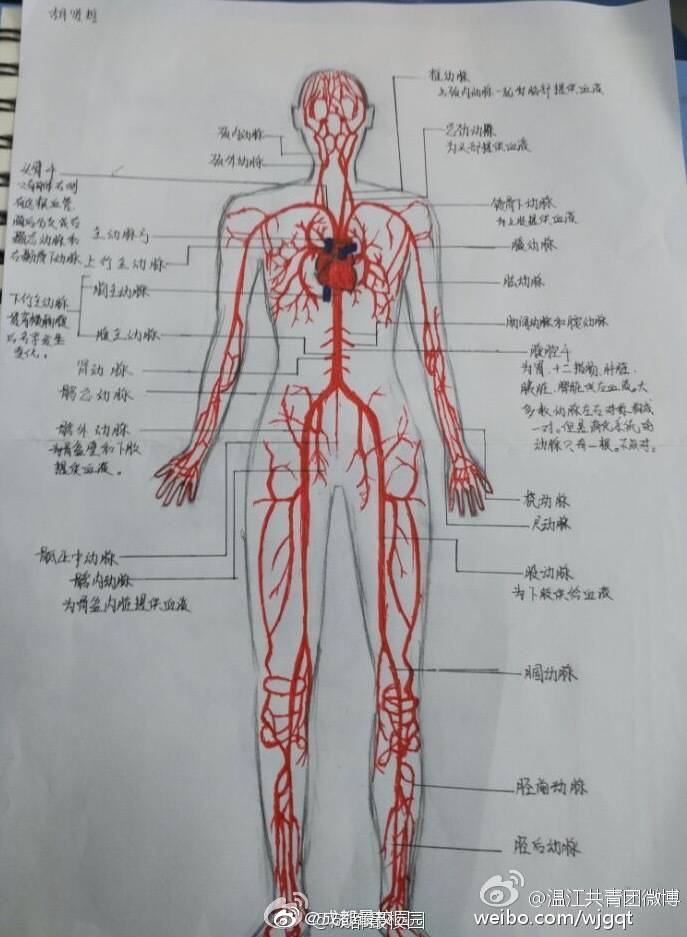 颈内动脉
颈外动脉
头臂干
主动脉弓
上行主动脉
胸主动脉
下行主动脉
变化。
腹主动脉
肾动脉
髂总动脉
髂外动脉
为骨盆壁和下肢
提供血液。
骶正中动脉
髂内动脉
为骨盆内脏提供血液
椎动脉
与颈内动脉一起为脑部提供血液
颈总动脉
为头部提供血液
锁骨下动脉
为上肢提供血液
腋动脉
肱动脉
肋间动脉和膈动脉
腹腔干
为胃、十二指肠、肝脏、
胰脏、脾脏供应血液。大
多数动脉左右对称构成
动脉只有一根。不成对。
桡动脉
尺动脉
股动脉
为下肢供给血液
腘动脉
胫前动脉
胫后动脉
@成都最校园
@温江共青团微博
weibo.com/wjgqt